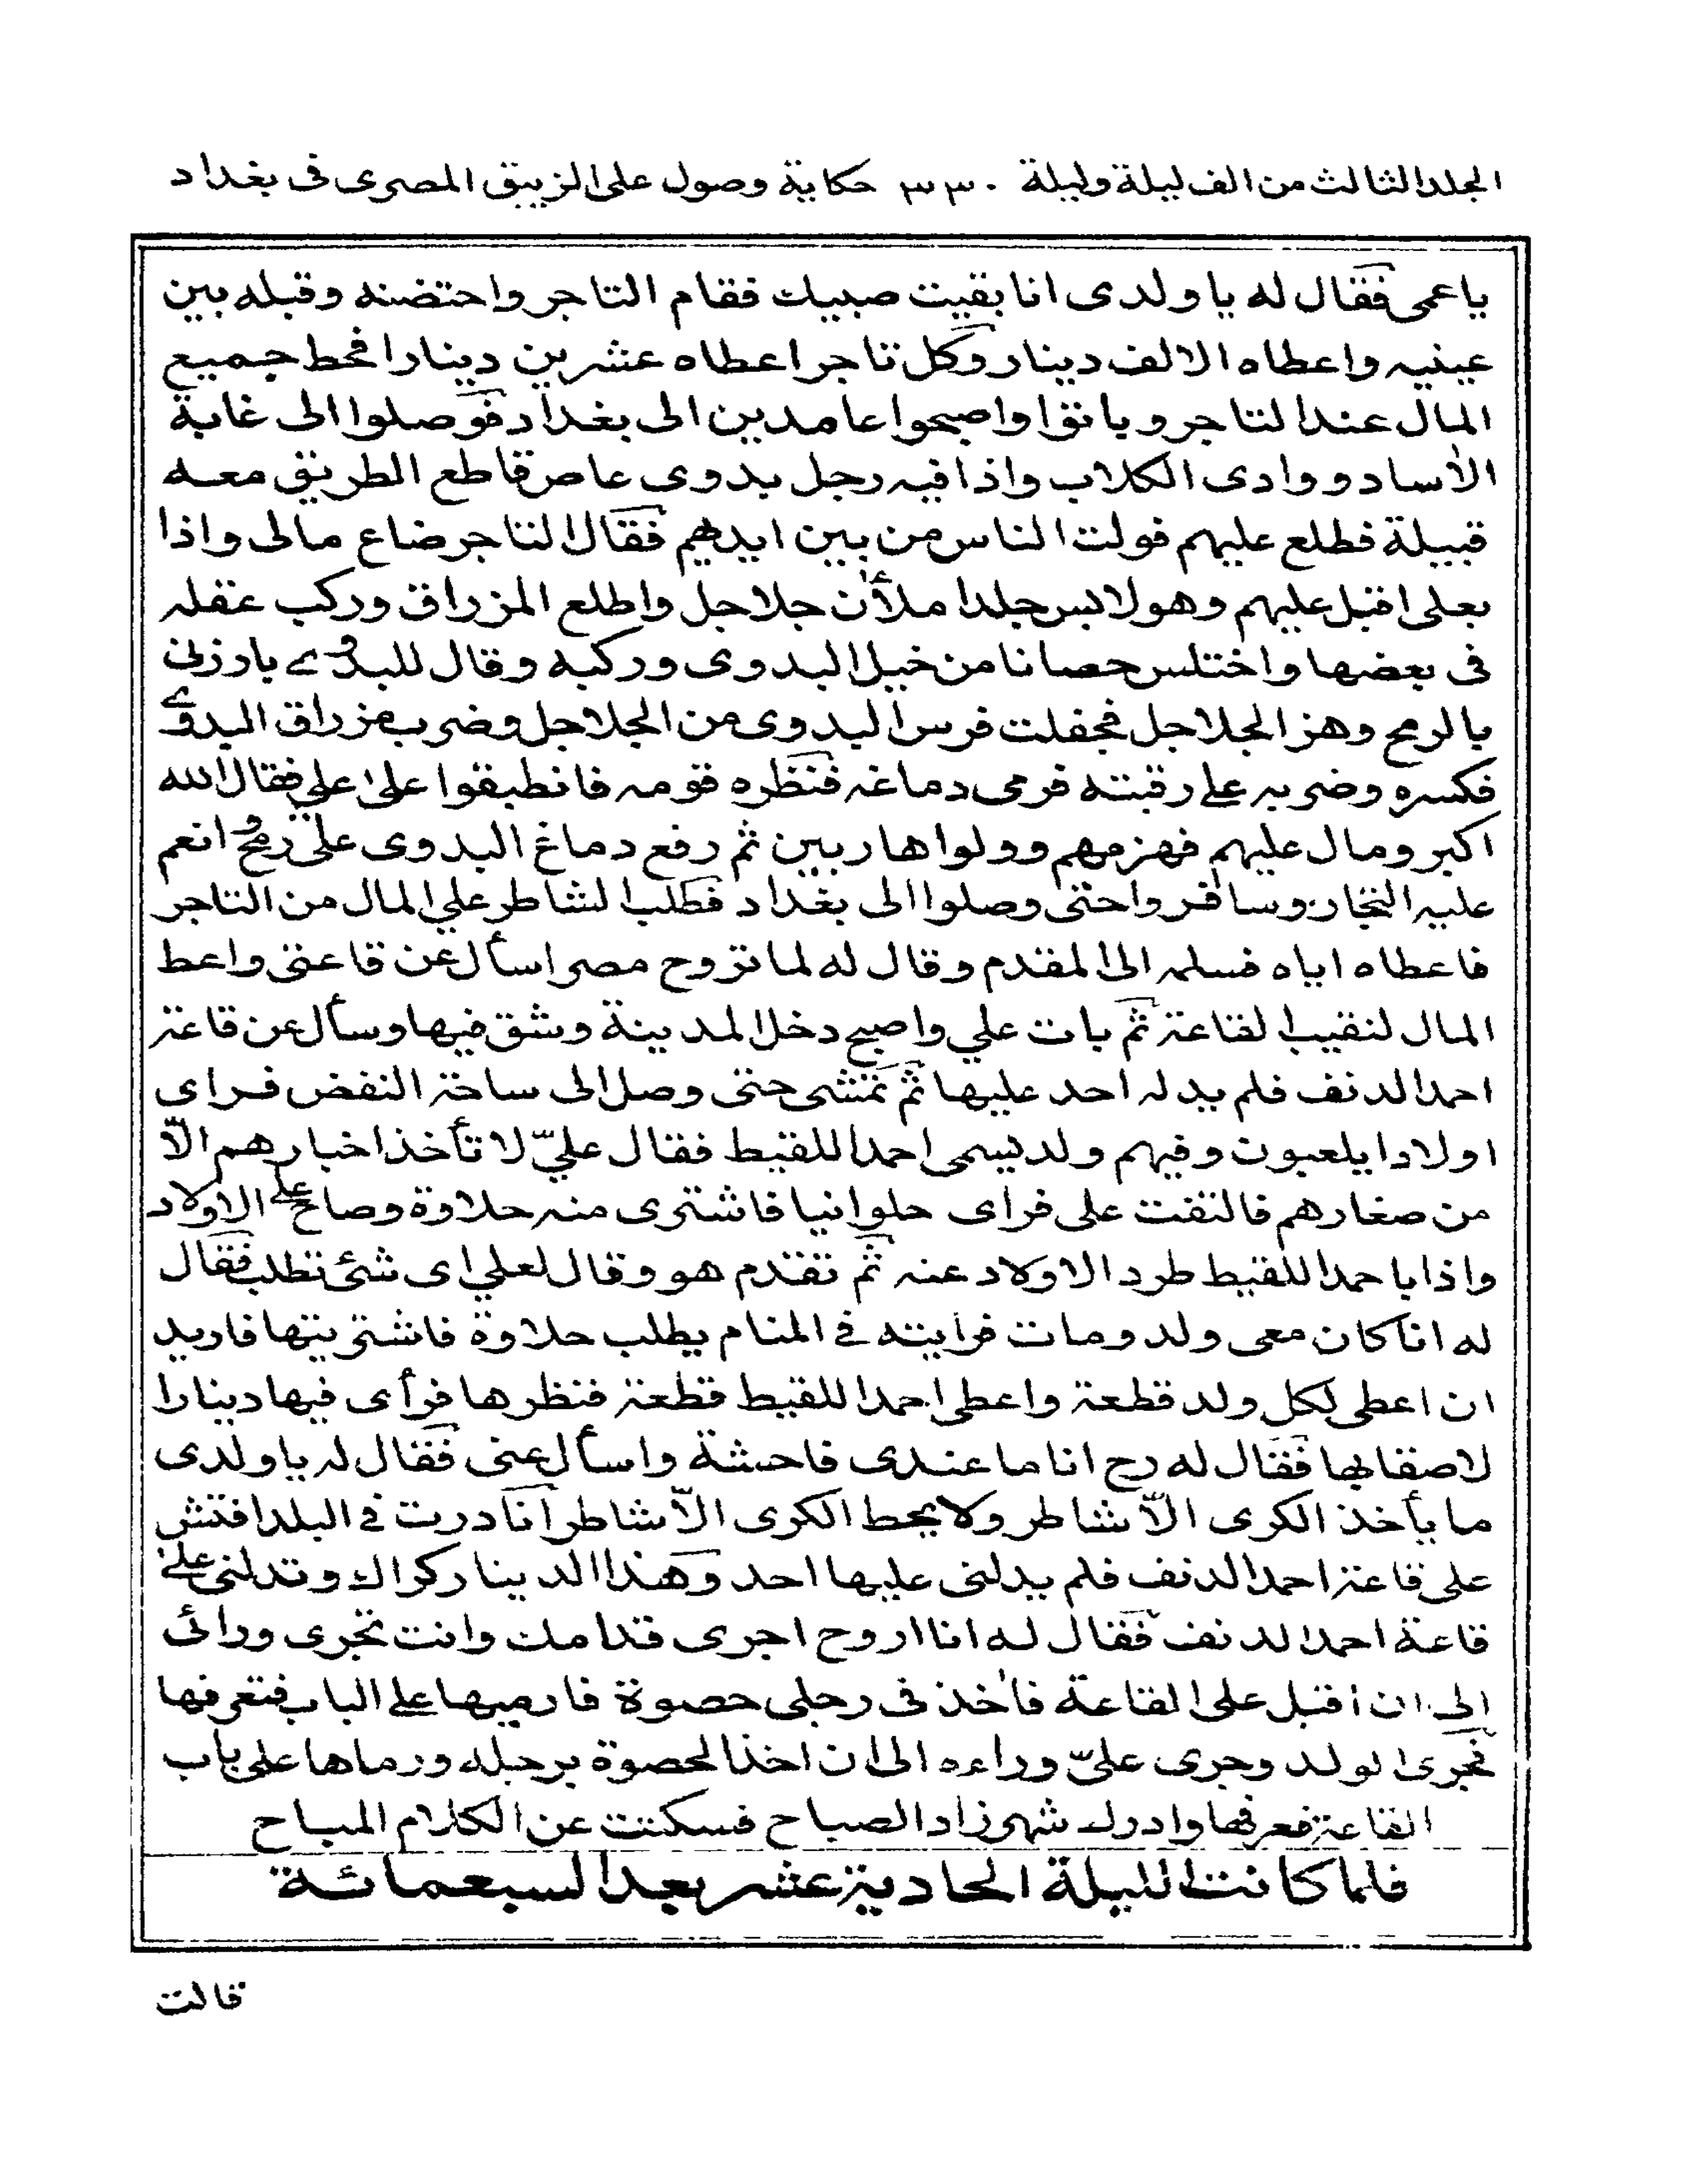 المجلد الثالث من الف ليلة وليلة ٣٣٠ حكاية وصول على الزيبق المصرى فى بغداد
ياعمى فقال له يا ولدى انا بقيت صبيك فقام التاجر واحتضنه وقبله بين
عينيه واعطاه الالف دينار وكل تاجر اعطاه عشرين دينارا فحط جميع
المال عند التاجر وباتوا واصبحوا عامدين الى بغداد فوصلوا الى غابة
الأساد ووادى الكلاب واذا فيه رجل بدوى عاص قاطع الطريق معه
قبيلة فطلع عليهم فولت الناس من بين ايديهم فقال التاجر ضاع مالى واذا
بعلى اقبل عليهم وهو لابس جلدا ملأن جلاجل واطلع المزراق وركب عقله
فى بعضها واختلس حصانا من خيل البدوى وركبه وقال للبدوى بارزنى
بالرمح وهز الجلاجل فجفلت فرس البدوى من الجلاجل وضرب مزراق البدوى
فكسره وضربه على رقبته فرمى دماغه فنظره قومه فانطبقوا على على فقال الله
اكبر ومال عليهم فهزمهم وولوا هاربين ثم رفع دماغ البدوى على رمح وانعم
عليه التجار وسافروا حتى وصلوا الى بغداد فطلب الشاطر علي المال من التاجر
فاعطاه اياه فسلمه الى المقدم وقال له لما تروح مصر اسأل عن قاعتى واعط
المال لنقيب القاعة ثم بات علي واصبح دخل المدينة وشق فيها وسأل عن قاعة
احمد الدنف فلم يدله احد عليها ثم تمشى حتى وصل الى ساحة النفض فراى
اولادا يلعبون وفيهم ولد يسمى احمد اللقيط فقال عليّ لا تأخذ اخبارهم الّا
من صغارهم فالتفت على فراى حلوانيا فاشترى منه حلاوة وصاح على الاولاد
واذا باحمد اللقيط طرد الاولاد عنه ثم تقدم هو وقال لعلي اى شئ تطلب فقال
له انا كان معى ولد ومات فرايته فى المنام يطلب حلاوة فاشتريتها فاريد
ان اعطى لكل ولد قطعة واعطى احمد اللقيط قطعة فنظرها فرأى فيها دينارا
لاصقا بها فقال له رح انا ما عندى فاحشة واسأل عنى فقال له يا ولدى
ما يأخذ الكرى الّا شاطر ولا يحط الكرى الّا شاطر انا درت فى البلد افتش
على قاعة احمد الدنف فلم يدلنى عليها احد وهذا الدينار كراك وتدلنى على
قاعة احمد الدنف فقال له انا اروح اجرى قدامك وانت تجرى ورائى
الى ان اقبل على القاعة فأخذ فى رجلى حصوة فارميها على الباب فتعرفها
فجرى الولد وجرى عليّ وراءه الى ان اخذ الحصوة برجله ورماها على باب
القاعة فعرفها وادرك شهرزاد الصباح فسكتت عن الكلام المباح
فلما كانت الليلة الحادية عشر بعد السبعمائة
قالت